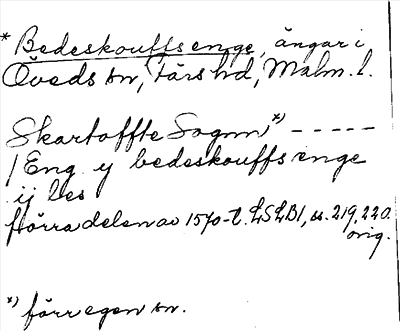 * Bedeskouffs enge, ängar i
Öveds sn, Färs hd, Malm. l.
Skartoffte Sognn *) - - - - -
1 Eng y bedeskouffs enge
ij les
förra delen av 1570-t. LSLB1, ss. 219, 220.
orig.
*) förr egen sn.